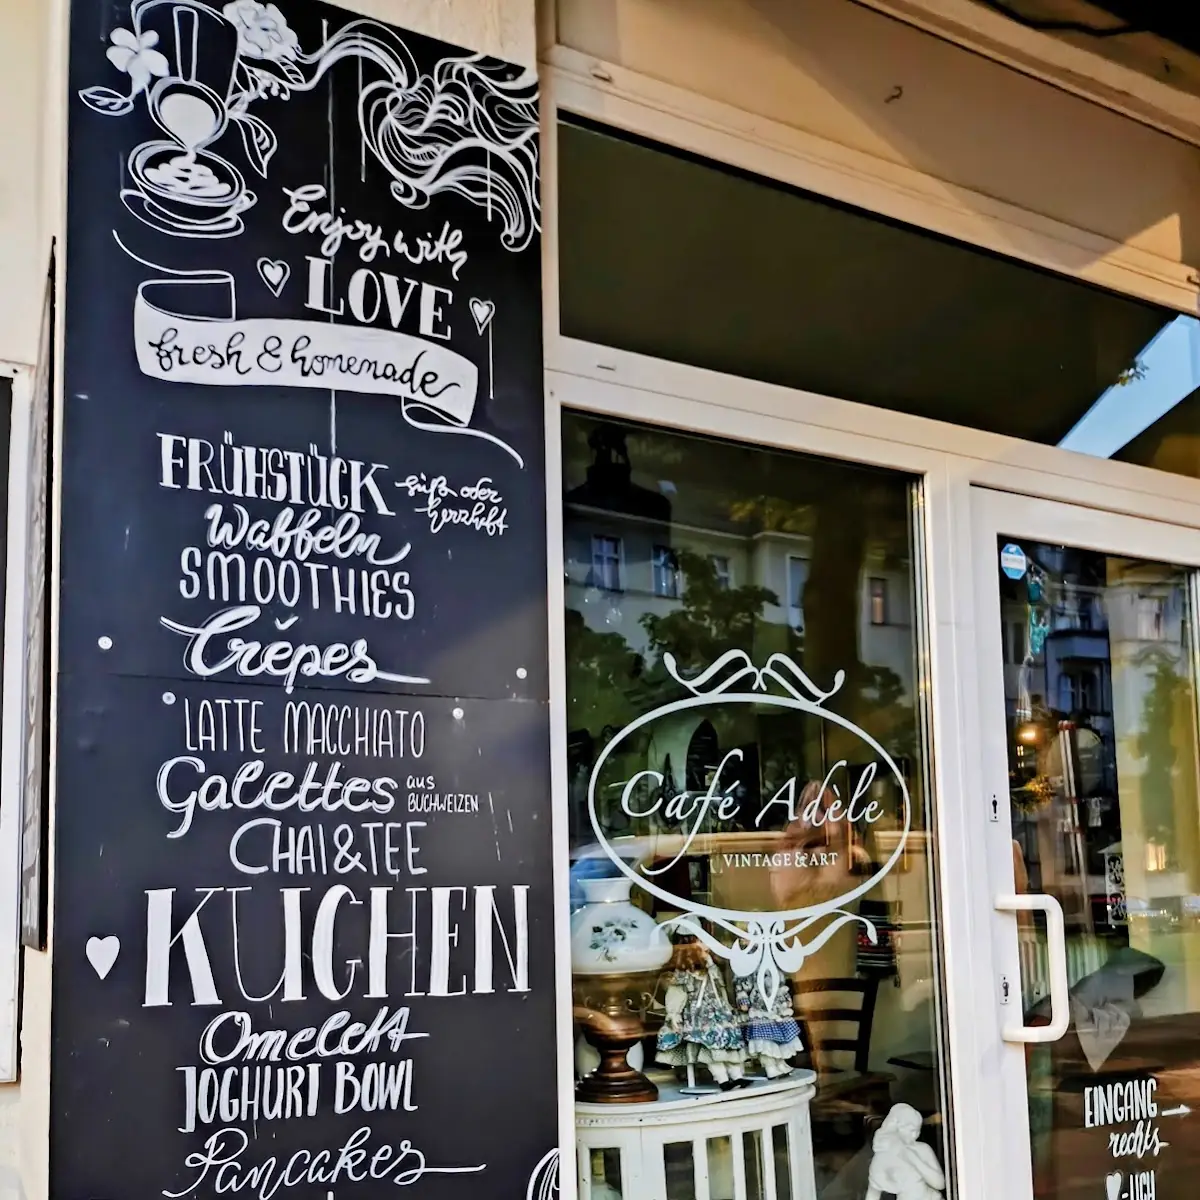 Enjoy with
LOVE
fresh & homemade
FRÜHSTÜCK süß oder
herzhaft
Waffeln
SMOOTHIES
Crêpes
LATTE MACCHIATO
Galettes aus
BUCHWEIZEN
CHAI & TEE
KUCHEN
Omelett
JOGHURT BOWL
Pancakes
Café Adèle
VINTAGE & ART
EINGANG
rechts